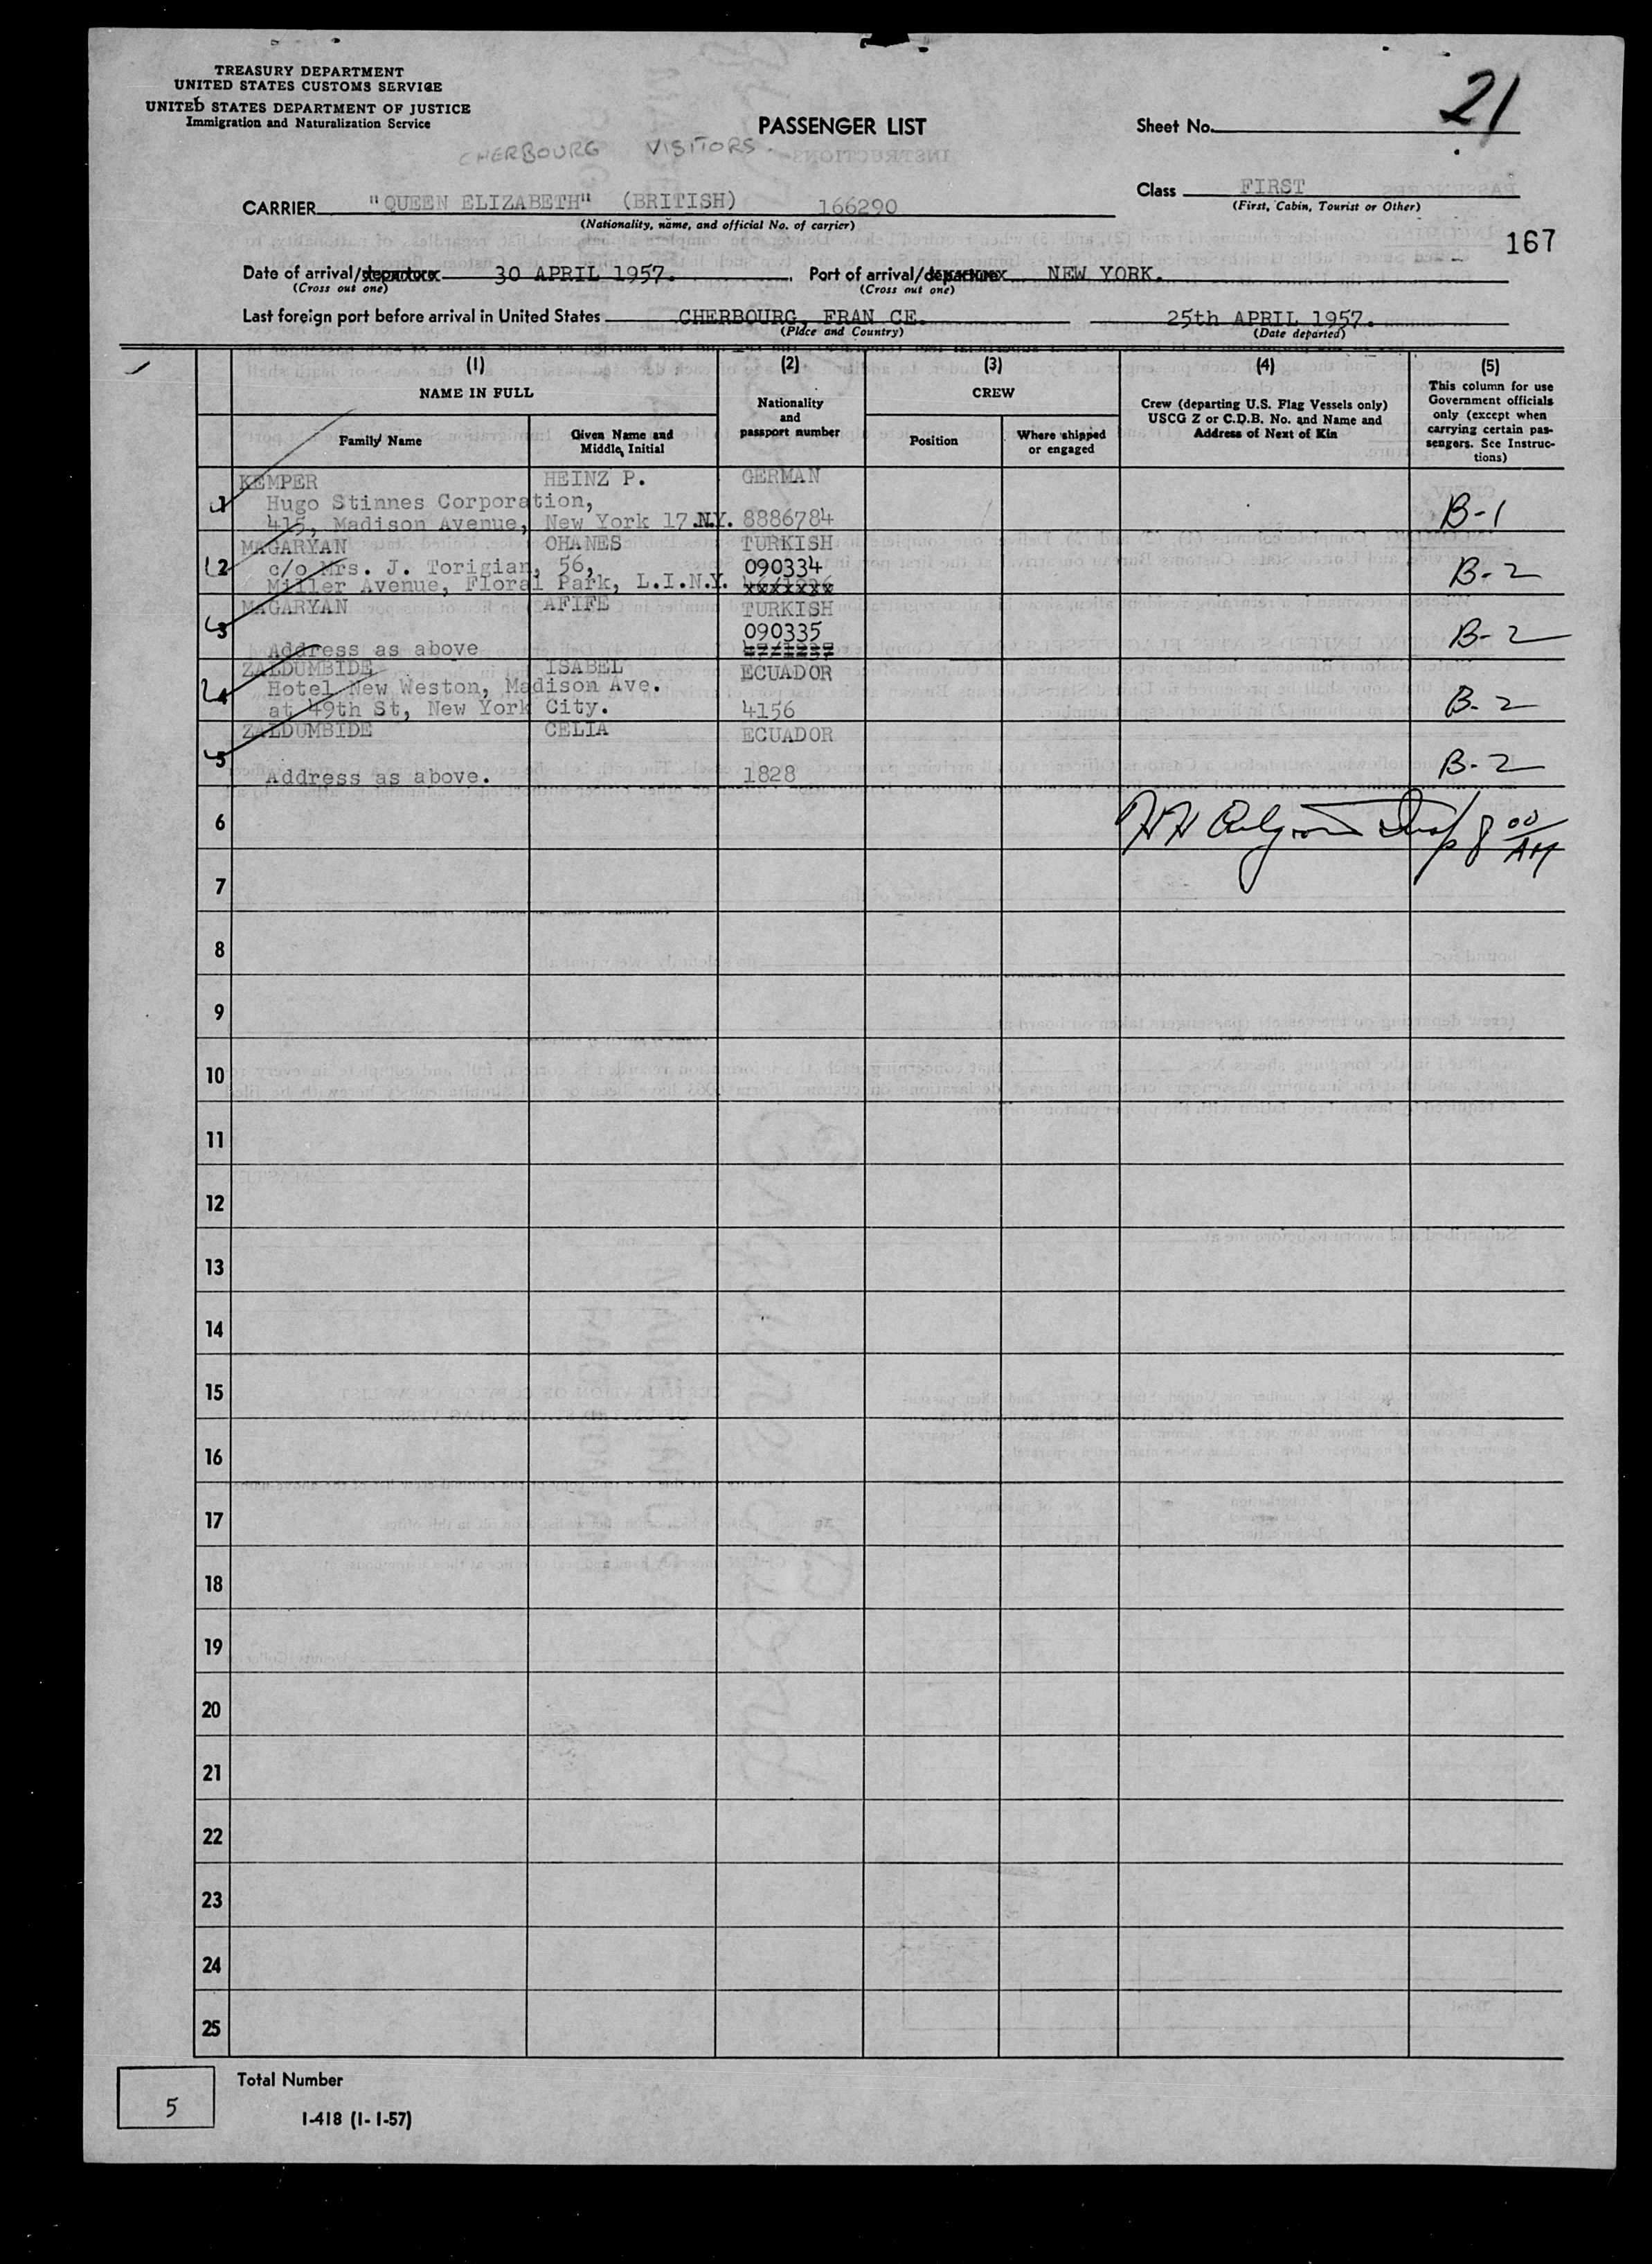 TREASURY DEPARTMENT
UNITED STATES CUSTOMS SERVICE
UNITED STATES DEPARTMENT OF JUSTICE
Immigration and Naturalization Service
PASSENGER LIST
Sheet No. 21
CHERBOURG VISITORS.
Class FIRST
(First, Cabin, Tourist or Other)
CARRIER "QUEEN ELIZABETH" (BRITISH) 166290
(Nationality, name, and official No. of carrier)
167
Date of arrival/departure 30 APRIL 1957. Port of arrival/departure NEW YORK.
(Cross out one) (Cross out one)
Last foreign port before arrival in United States CHERBOURG, FRAN CE. 25th APRIL 1957.
(Place and Country) (Date departed)
(1) (2) (3) (4) (5)
NAME IN FULL
Family Name
Given Name and Middle Initial
Nationality and passport number
CREW
Position
Where shipped or engaged
Crew (departing U.S. Flag Vessels only)
USCG Z or C.D.B. No. and Name and
Address of Next of Kin
This column for use
Government officials
only (except when
carrying certain pas-
sengers. See Instruc-
tions)
1 KEMPER HEINZ P. GERMAN
Hugo Stinnes Corporation,
415, Madison Avenue, New York 17.N.Y. 8886784 B-1
2 MAGARYAN OHANES TURKISH
c/o Mrs. J. Torigian, 56, 090334
Miller Avenue, Floral Park, L.I.N.Y. B-2
3 MAGARYAN AFIFE TURKISH
090335 B-2
Address as above
4 ZALDUMBIDE ISABEL ECUADOR
Hotel New Weston, Madison Ave.
at 49th St, New York City. 4156 B-2
5 ZALDUMBIDE CELIA ECUADOR
Address as above. 1828 B-2
6
8 00/AM
7
8
9
10
11
12
13
14
15
16
17
18
19
20
21
22
23
24
25
5 Total Number
I-418 (1-1-57)